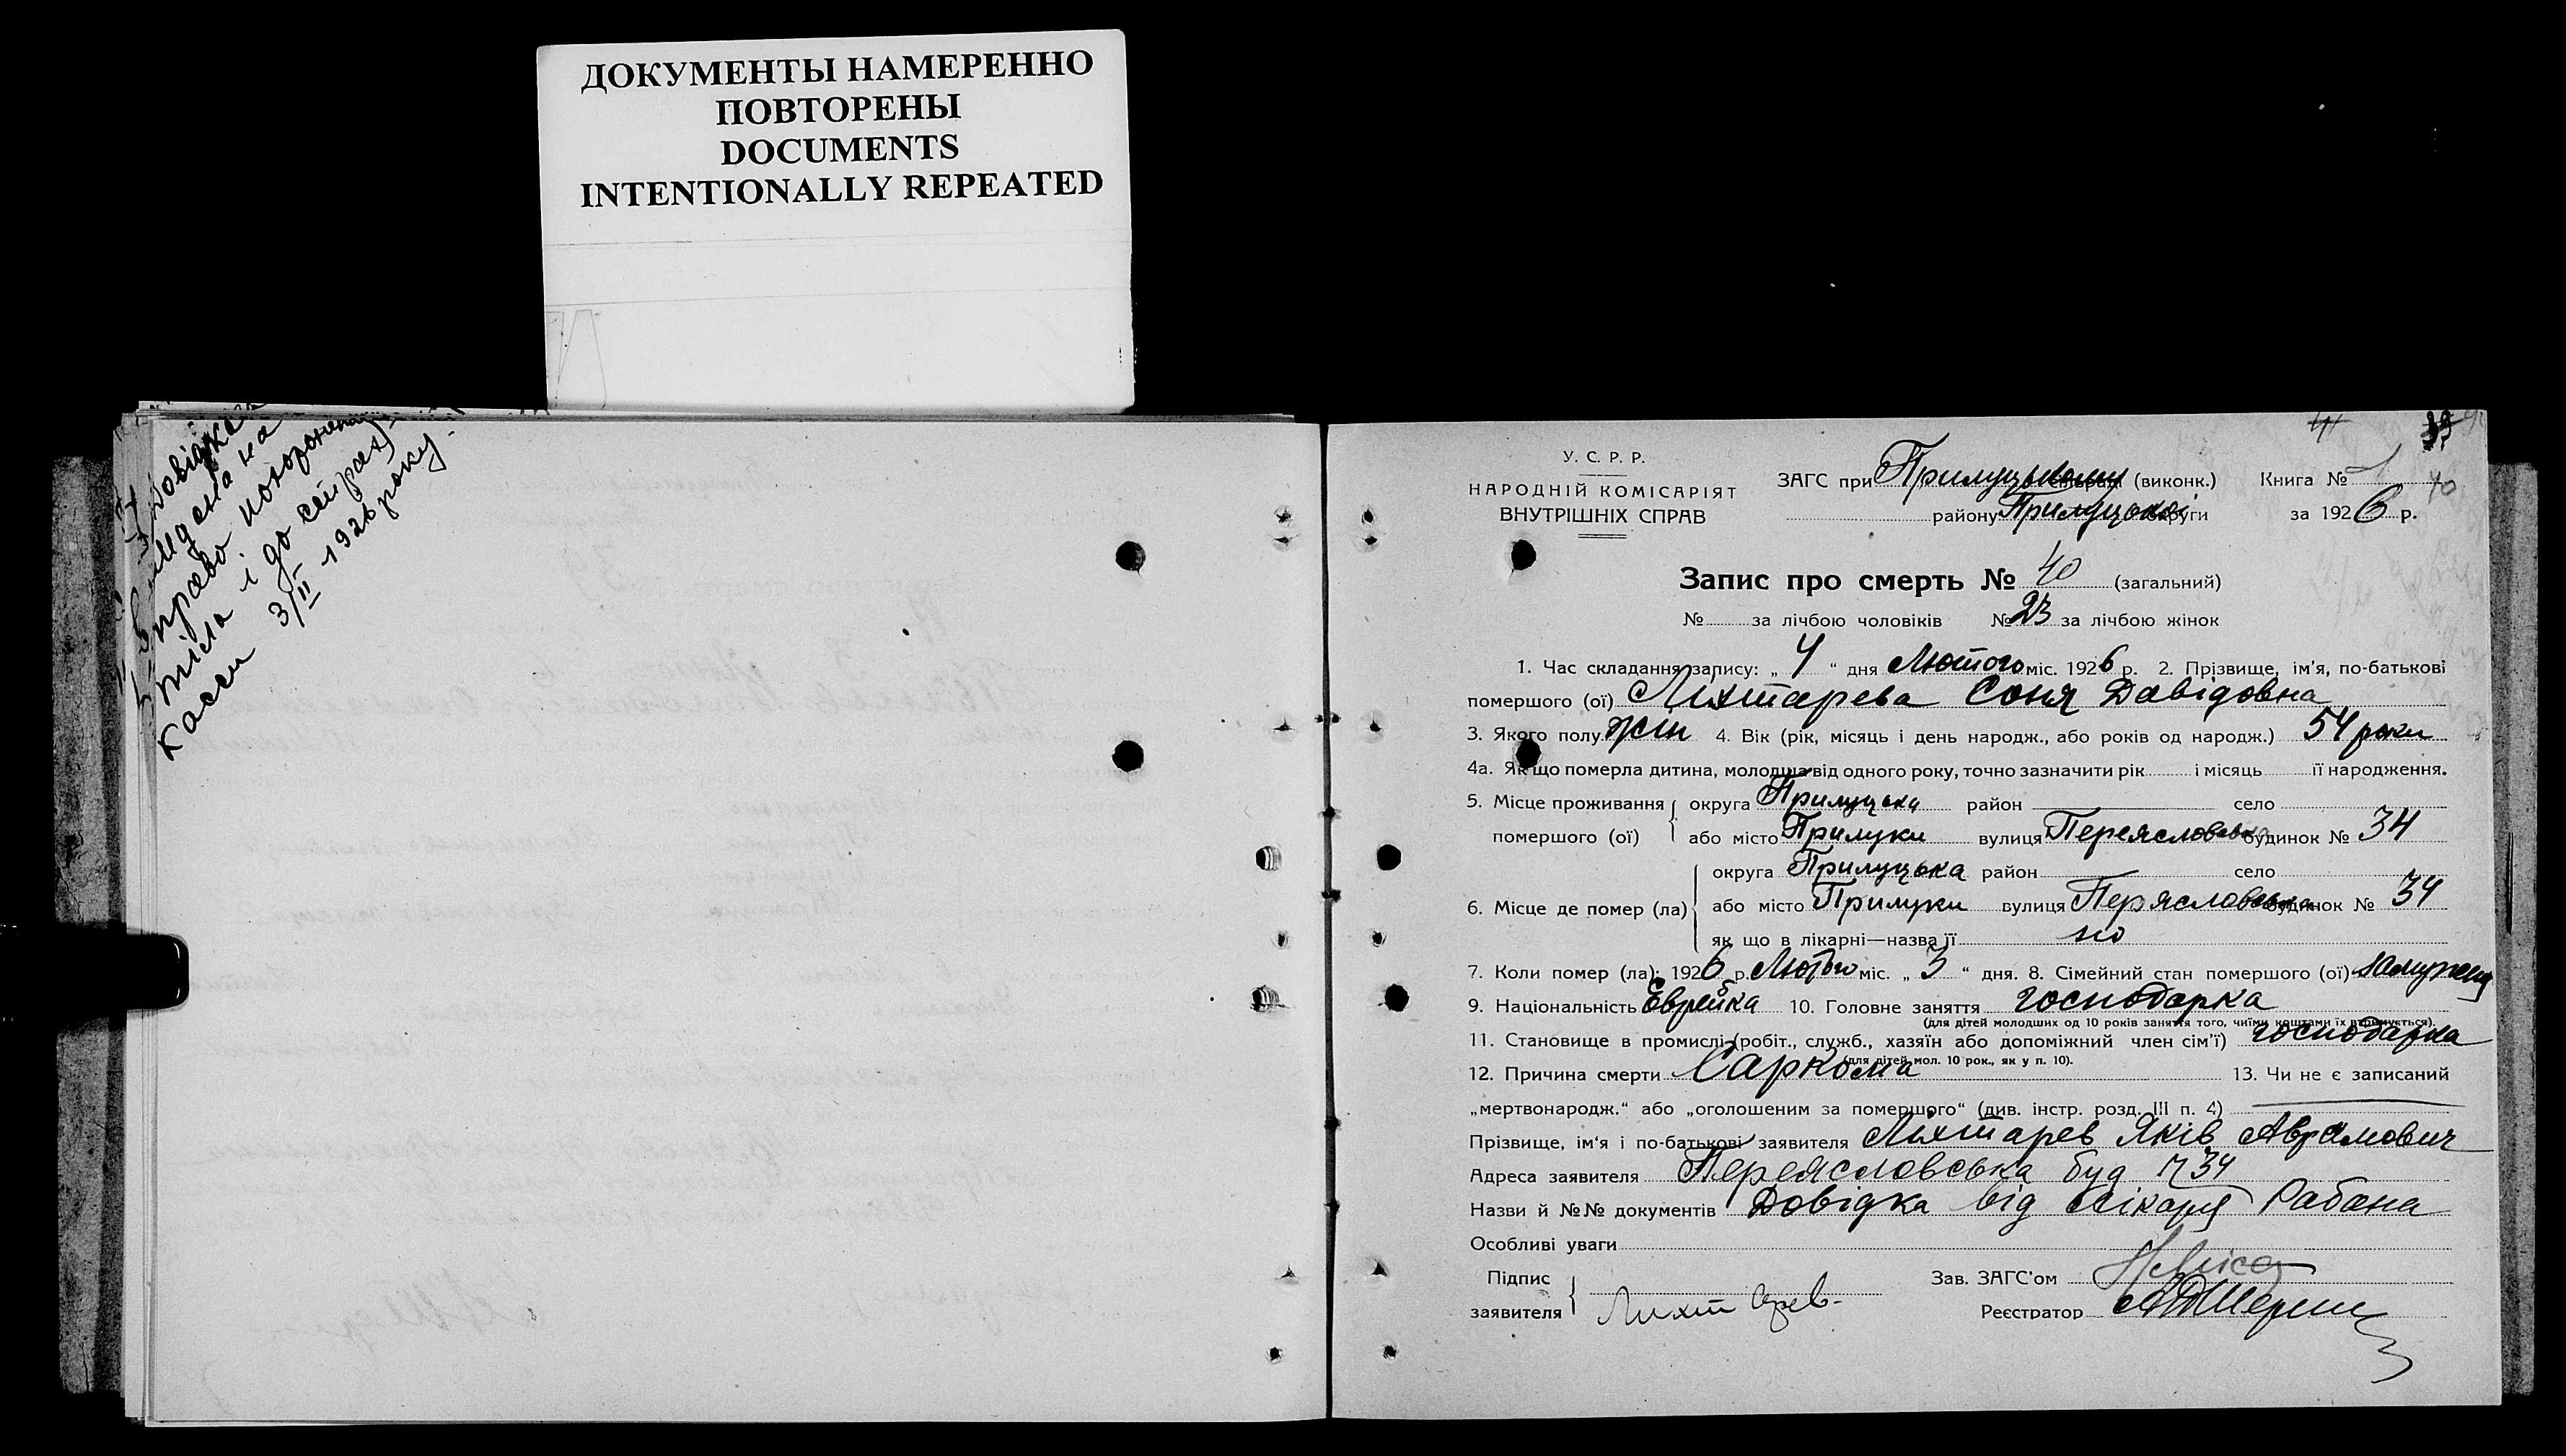 ДОКУМЕНТЫ НАМЕРЕННО
ПОВТОРЕНЫ
DOCUMENTS
INTENTIONALLY REPEATED
Довідка
видана на
право похорона
тіла і до страх
касси 3/II 1926 року.
41 39
40
У. С. Р. Р.
НАРОДНІЙ КОМІСАРІЯТ
ВНУТРІШНІХ СПРАВ
ЗАГС при Прилуцькому (виконк.) Книга № 1
району Прилуцької округи за 1926 р.
Запис про смерть № 40 (загальний)
№ за лічбою чоловіків № 23 за лічбою жінок
1. Час складання запису: „ 4 “ дня Лютого міс. 1926 р. 2. Прізвище, ім'я, по-батькові
помершого (ої) Ліхтарева Соня Давідовна
3. Якого полу жін 4. Вік (рік, місяць і день народж., або років од народж.) 54 роки
4а. Як що померла дитина, молодша від одного року, точно зазначити рік і місяць її народження.
5. Місце проживання округа Прилуцька район село
помершого (ої) або місто Прилуки вулиця Переясловська будинок № 34
округа Прилуцька район село
6. Місце де помер (ла) або місто Прилуки вулиця Перясловська будинок № 34
як що в лікарні—назва її
7. Коли помер (ла): 1926 р. Лютого міс. „ 3 “ дня. 8. Сімейний стан помершого (ої) замужня
9. Національність Еврейка 10. Головне заняття господарка
(для дітей молодших од 10 років заняття того, чиїми коштами їх втримується).
11. Становище в промислі (робіт., служб., хазяїн або допоміжний член сім'ї) господарка
(для дітей мол. 10 рок., як у п. 10).
12. Причина смерти Саркома 13. Чи не є записаний
„мертвонародж.“ або „оголошеним за помершого“ (див. інстр. розд. III п. 4)
Прізвище, ім'я і по-батькові заявителя Ліхтарев Яків Аврамович
Адреса заявителя Переясловська буд № 34
Назви й №№ документів Довідка від лікаря Рабана
Особливі уваги
Підпис Зав. ЗАГС'ом
заявителя Лихтарев Реєстратор